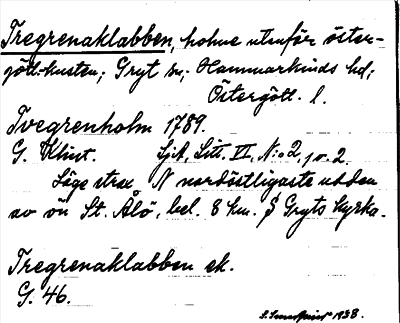 Tregrenaklabben, holme utmför öster-
götl.-kusten; Gryt sn; Hammarkinds hd;
Östergötl. l.
Tvegrenholm 1789.
G. Klint. SjA, Litt. VI, N:o 2,
Läge strax N nordöstligaste udden
av ön St. Ålö, bel. 8 km. S Gryts kyrka.
Tregrenaklabben ek.
G. 46.
1938.